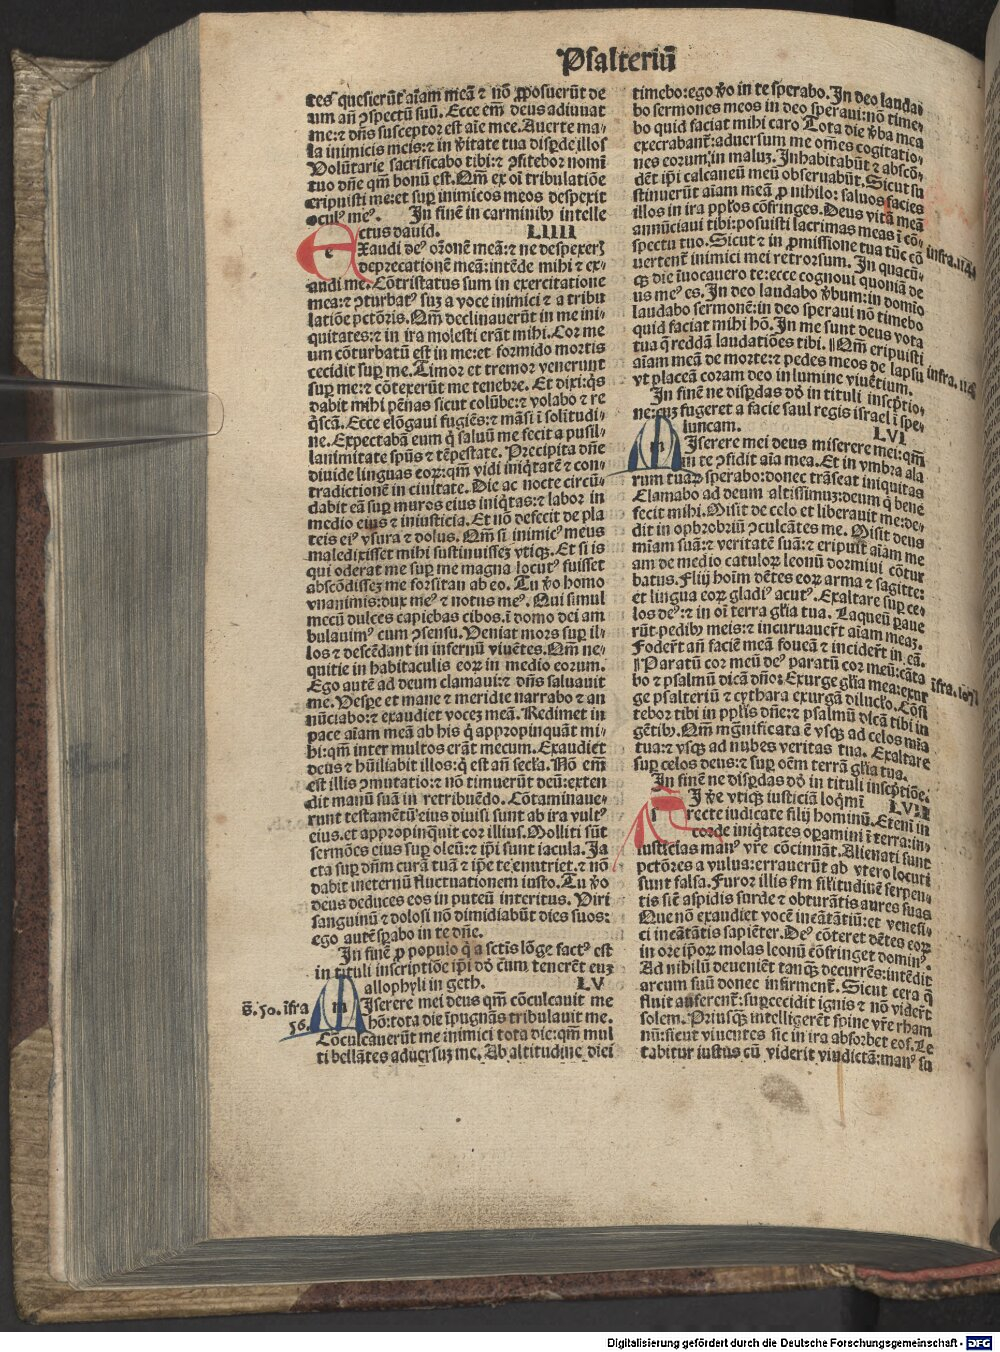 Psalteriū
tes quesierūt aīam meā ⁊ nō ꝓposuerūt de
um añ ꝯspectū suū. Ecce em̄ deus adiuuat
me:⁊ dñs susceptor est aīe mee. Auerte ma-
la inimicis meis:⁊ in ṽitate tua disꝑde illos
Volūtarie sacrificabo tibi:⁊ ꝯfitebor nomī
tuo dñe qm̄ bonū est. Qm̄ ex oī tribulatiōe
eripuisti me:et suꝑ inimicos meos despexit
oculꝰ meꝰ. In finē in carminibꝰ intelle
ctus dauid. LIIII
Exaudi deꝰ orōnē meā:⁊ ne despexeris
deprecationē meā:intēde mihi ⁊ ex-
audi me. Cōtristatus sum in exercitatione
mea:⁊ ꝯturbatꝰ suꝫ a voce inimici ⁊ a tribu
latiōe pctōris. Qm̄ declinauerūt in me ini-
quitates:⁊ in ira molesti erāt mihi. Cor me
um cōturbatū est in me:et formido mortis
cecidit suꝑ me. Timor et tremor venerunt
suꝑ me:⁊ cōtexerūt me tenebre. Et dixi:q̇s
dabit mihi pēnas sicut colūbe:⁊ volabo ⁊ re
q̇scā. Ecce elōgaui fugiēs:⁊ māsi ī solitudi-
ne. Expectabā eum q̇ saluū me fecit a pusil-
lanimitate spūs ⁊ tēpestate. Precipita dñe
diuide linguas eoꝝ:qm̄ vidi iniq̇tatē ⁊ con-
tradictionē in ciuitate. Die ac nocte circū-
dabit eā suꝑ muros eius iniq̇tas:⁊ labor in
medio eius ⁊ iniusticia. Et nō defecit de pla
teis eiꝰ vsura ⁊ dolus. Qm̄ si inimicꝰ meus
maledixisset mihi sustinuisseꝫ vtiqꝫ. Et si is
qui oderat me suꝑ me magna locutꝰ fuisset
abscōdisseꝫ me forsitan ab eo. Tu ṽo homo
vnanimis:dux meꝰ ⁊ notus meꝰ. Qui simul
mecū dulces capiebas cibos.ī domo dei am
bulauimꝰ cum ꝯsensu. Veniat mors suꝑ il-
los ⁊ descēdant in infernū viuētes. Qm̄ ne-
quitie in habitaculis eoꝝ in medio eorum.
Ego autē ad deum clamaui:⁊ dñs saluauit
me. Vespe et mane ⁊ meridie narrabo ⁊ an
nūciabo:⁊ exaudiet voceꝫ meā. Redimet in
pace aīam meā ab his q̇ appropinquāt mi-
hi:qm̄ inter multos erāt mecum. Exaudiet
deus ⁊ hūiliabit illos:q̇ est añ secła. Nō em̄
est illis ꝯmutatio:⁊ nō timuerūt deū:exten
dit manū suā in retribuēdo. Cōtaminaue-
runt testamētū eius diuisi sunt ab ira vultꝰ
eius.et appropinquit cor illius. Molliti sūt
sermōes eius suꝑ oleū:⁊ ip̄i sunt iacula. Ja
cta suꝑ dñm curā tuā ⁊ ip̄e te enutriet.⁊ nō
dabit ineternū fluctuationem iusto. Tu ṽo
deus deduces eos in puteū interitus. Viri
sanguinū ⁊ dolosi nō dimidiabūt dies suos:
ego autē sꝑabo in te dñe.
In finē ꝓ populo q̇ a sctīs lōge factꝰ est
in tituli inscriptiōe ip̄i dō cum tenerēt euꝫ
allophyli in geth. LV
s̄. 50. īfra
56.
Miserere mei deus qm̄ cōculcauit me
hō:tota die īpugnās tribulauit me.
Cōculcauerūt me inimici tota die:qm̄ mul
ti bellātes aduersuꝫ me. Ab altitudine diei
timebo:ego ṽo in te sperabo. In deo lauda-
bo sermones meos in deo speraui:nō time-
bo quid faciat mihi caro Tota die ṽba mea
execrabanť:aduersum me om̄es cogitatio-
nes eorum in maluꝫ. Inhabitabūt ⁊ abscō-
dēt ip̄i calcaneū meū obseruabūt. Sicut su
stinuerūt aīam meā ꝓ nihilo: saluos facies
illos in ira ppłos cōfringes. Deus vitā meā
annūciaui tibi:posuisti lacrimas meas ī cō-
spectu tuo. Sicut ⁊ in ꝓmissione tua tūc cō
uertenť inimici mei retrorsum. In quacū-
qꝫ die īuocauero te:ecce cognoui quoniā de
us meꝰ es. In deo laudabo ṽbum:in domīo
laudabo sermonē:in deo speraui nō timebo
quid faciat mihi hō. In me sunt deus vota
tua q̄ reddā laudatiōes tibi. ‖Qm̄ eripuisti
aīam meā de morte:⁊ pedes meos de lapsu
vt placeā coram deo in lumine viuētium.
In finē ne disꝑdas dō in tituli inscp̄tio-
ne:cuꝫ fugeret a facie saul regis israel ī spe-
luncam. LVI
Miserere mei deus miserere mei:qm̄
in te ꝯfidit aīa mea. Et in vmbra ala
rum tuaꝝ sperabo:donec trāseat iniquitas
Clamabo ad deum altissimuꝫ:deum q̇ bene
fecit mihi. Misit de celo et liberauit me:de-
dit in opbrobriū ꝯculcātes me. Misit deus
mīam suā:⁊ veritatē suā:⁊ eripuit aīam me
am de medio catuloꝝ leonū dormiui cōtur
batus. Filij hoīm dētes eoꝝ arma ⁊ sagitte:
et lingua eoꝝ gladiꝰ acutꝰ. Exaltare suꝑ ce-
los deꝰ:⁊ in oī terra głia tua. Laqueū paue
rūt pedibꝰ meis:⁊ incuruauerť aīam meaꝫ.
Foderť añ faciē meā foueā ⁊ inciderť in eā.
‖Paratū cor meū deꝰ paratū cor meū:cāta
bo ⁊ psalmū dicā dño: Exurge głia mea:exur
ge psalteriū ⁊ cythara exurgā dilucło. Cōfi
tebor tibi in ppłis dñe:⁊ psalmū dicā tibi in
gētibꝰ. Qm̄ mḡnificata ē vsqꝫ ad celos mīa
tua:⁊ vsqꝫ ad nubes veritas tua. Exaltare
suꝑ celos deus:⁊ suꝑ oēm terrā głia tua.
In finē ne disꝑdas dō in tituli inscp̄tiōe.
Si ṽe vtiqꝫ iusticiā loq̇mī LVII
recte iudicate filij hominū. Etenī in
corde iniq̇tates oꝑamini ī terra:in-
iusticias manꝰ vr̄e cōcinnāt. Alienati sunt
pctōres a vulua:errauerūt ab vtero locuti
sunt falsa. Furor illis ẜm sil̄itudinē serpen-
tis siē aspidis surde ⁊ obturātis aures suas
Que nō exaudiet vocē incātātiū:et venefi-
ci incātātis sapiēter. Deꝰ cōteret dētes eoꝝ
in ore ip̄oꝝ molas leonū cōfringet dominꝰ.
Ad nihilū deueniēt tanqꝫ decurrēs:intēdit
arcum suū donec infirmenť. Sicut cera q̄
fluit auferenť:suꝑcecidit ignis ⁊ nō viderť
solem. Priusqꝫ intelligerēt spine vr̄e rham
nū:sicut viuentes sic in ira absorbet eos. Le
tabitur iustus cū viderit vindictā:manꝰ su
infra.114
infra.114
īfra.107
Digitalisierung gefördert durch die Deutsche Forschungsgemeinschaft - DFG